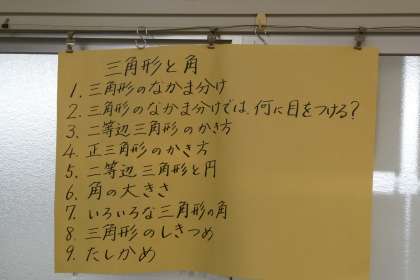 三角形と角
1. 三角形のなかま分け
2. 三角形のなかま分けでは、何に目をつける?
3. 二等辺三角形のかき方
4. 正三角形のかき方
5. 二等辺三角形と円
6. 角の大きさ
7. いろいろな三角形の角
8. 三角形のしきつめ
9. たしかめ